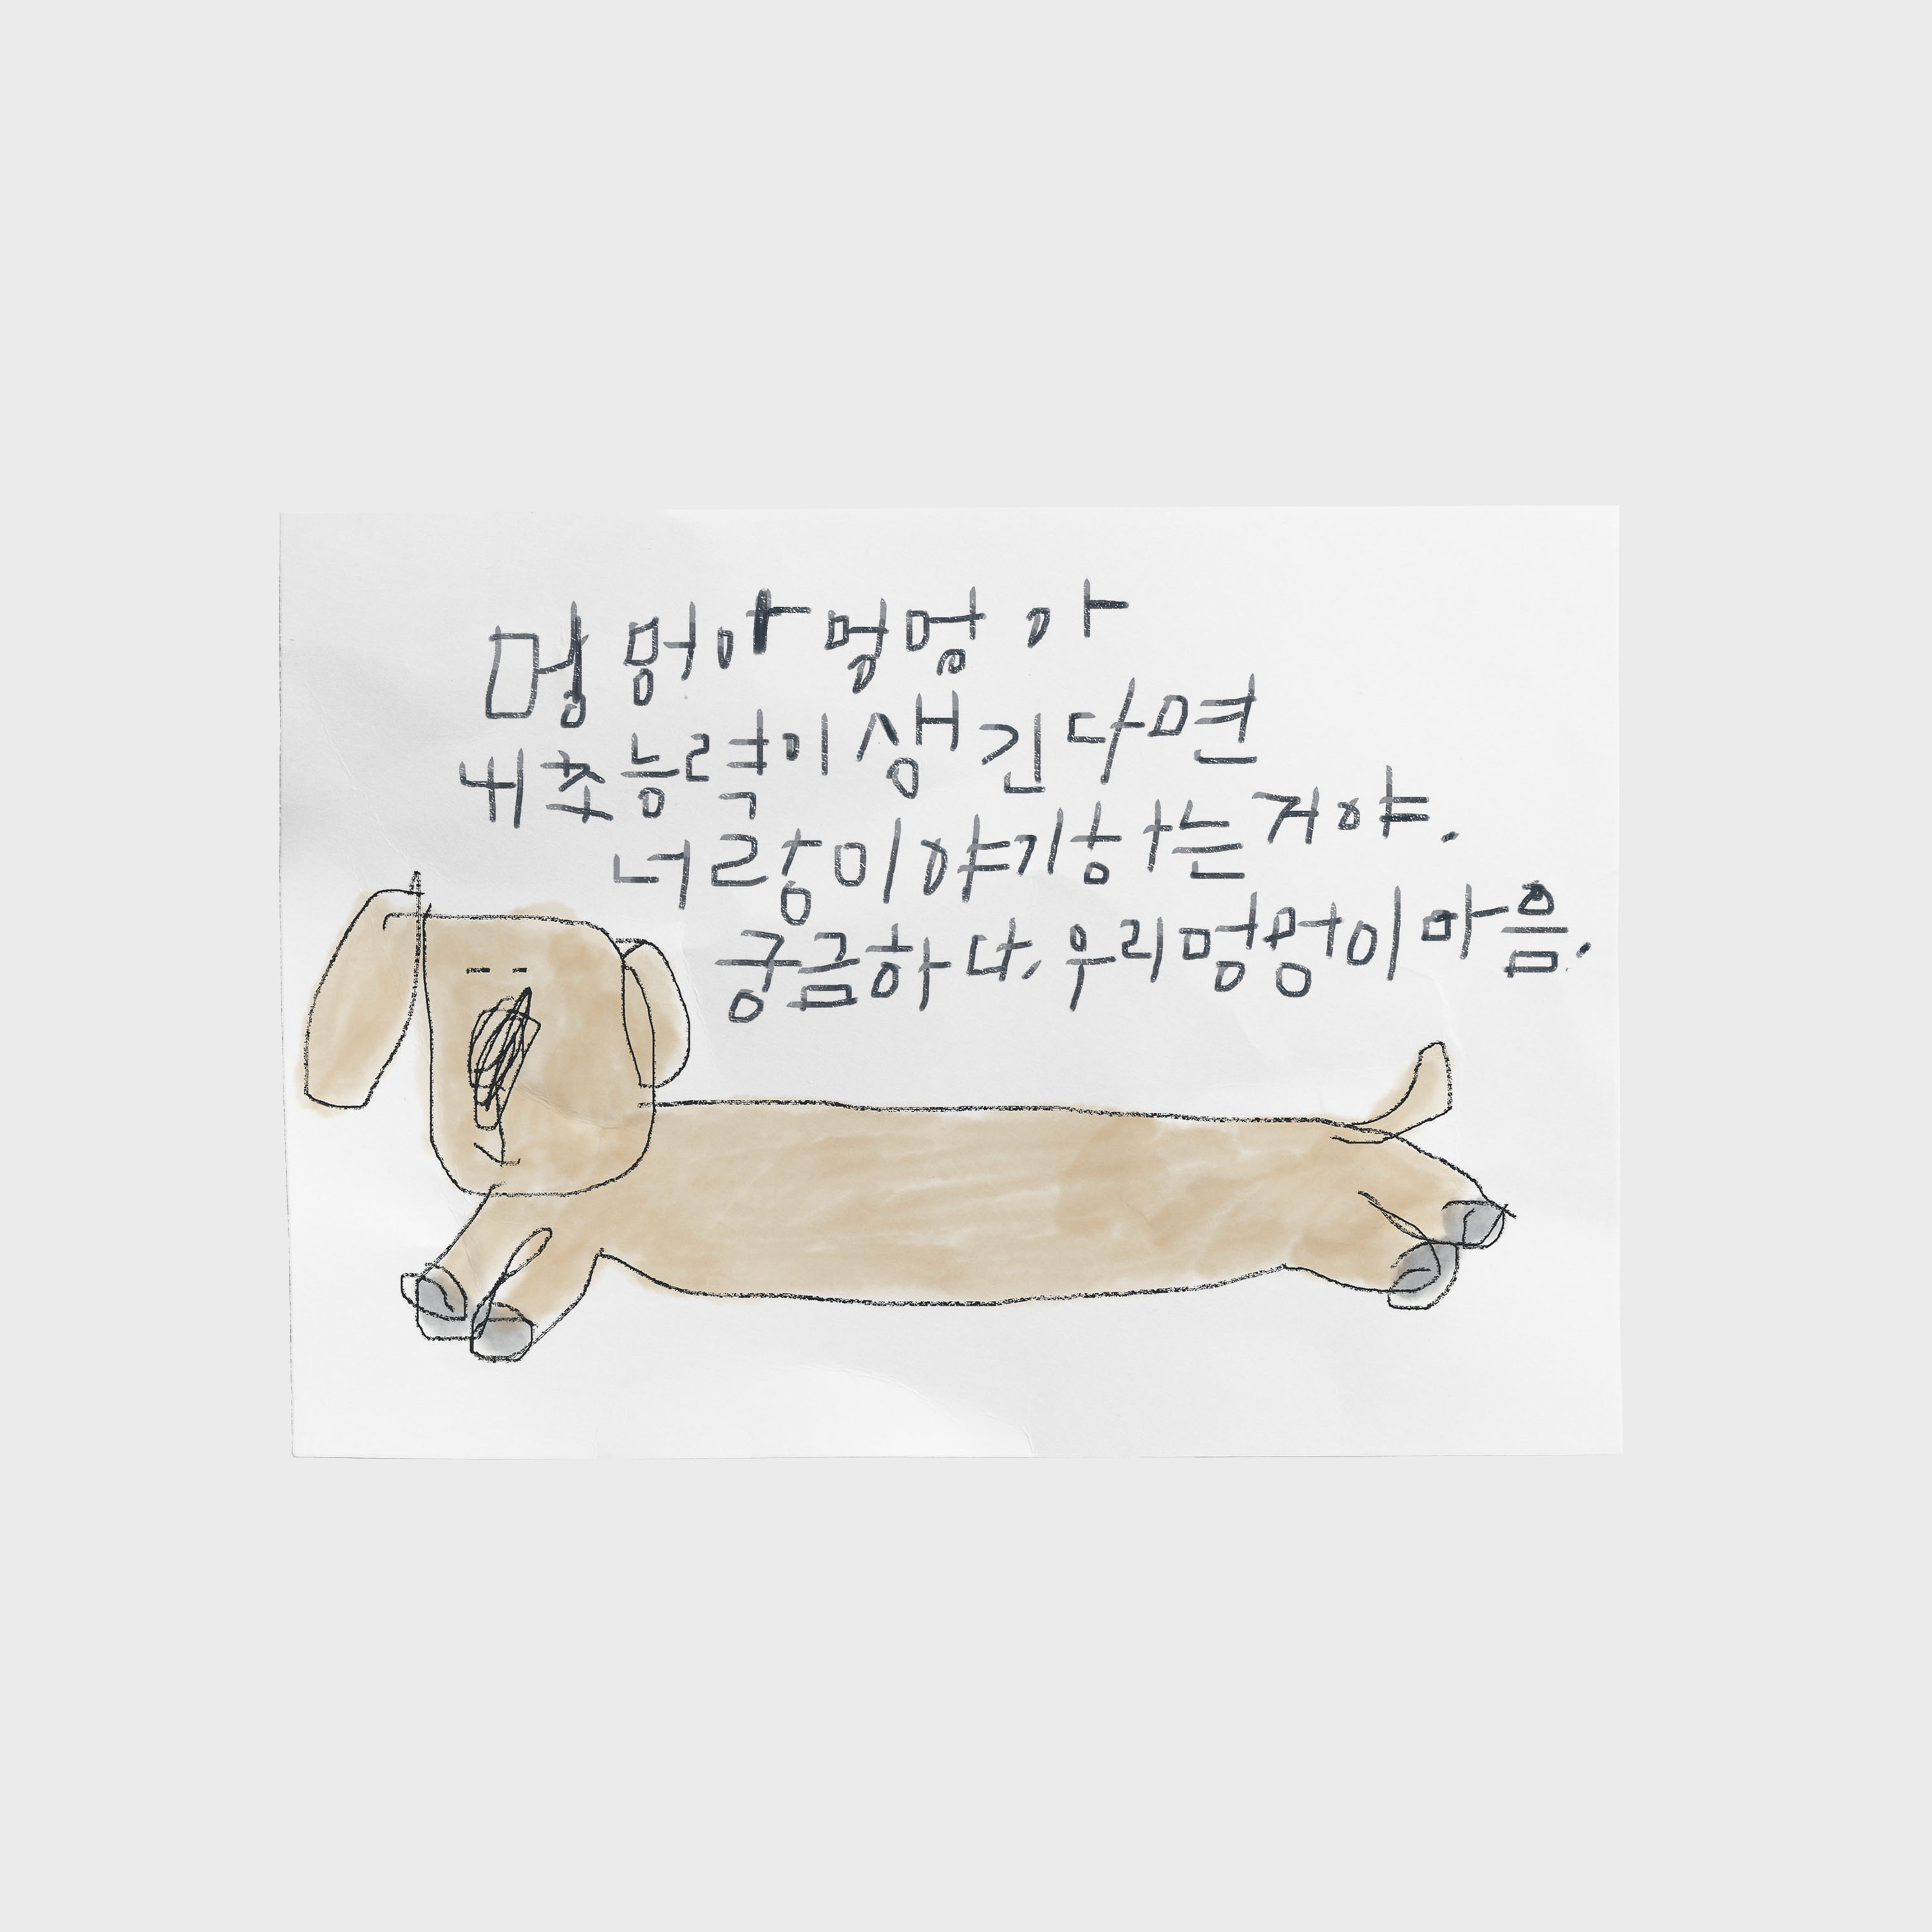 멍멍아 멍멍아
내 초능력이 생긴다면
너랑 이야기하는 거야.
궁금하다, 우리 멍멍이 마음.